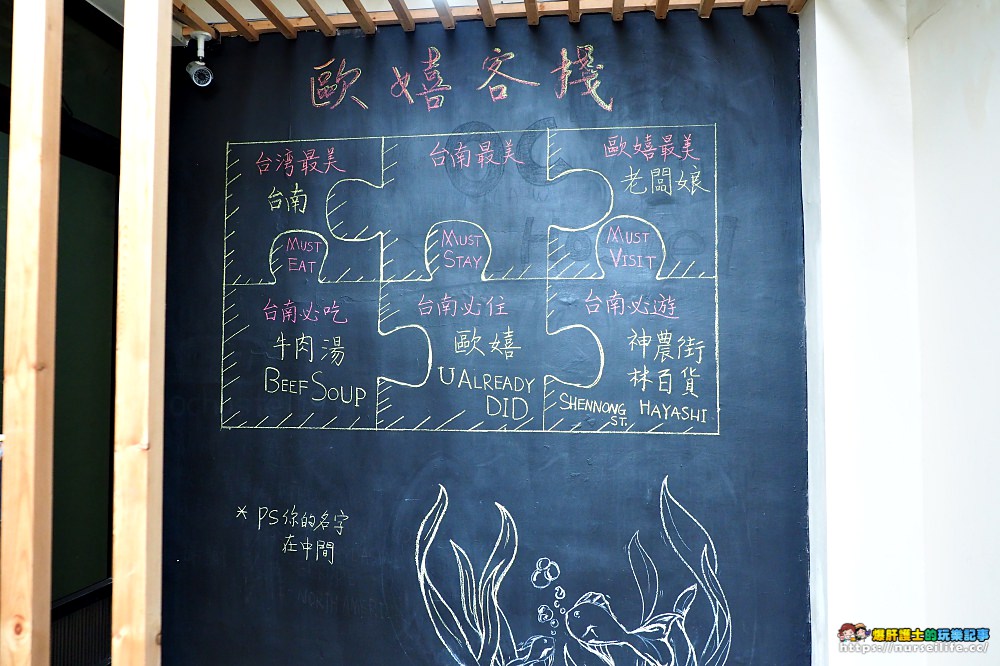 歐嬉客棧
台湾最美
台南
台南最美
歐嬉最美
老闆娘
MUST
EAT
MUST
STAY
MUST
VISIT
台南必吃
牛肉湯
BEEF SOUP
台南必住
歐嬉
U ALREADY
DID
台南必遊
神農街
林百貨
SHENNONG
ST.
HAYASHI
* PS你的名字
在中間
爆肝護士的玩樂記事
https://nurseilife.cc/